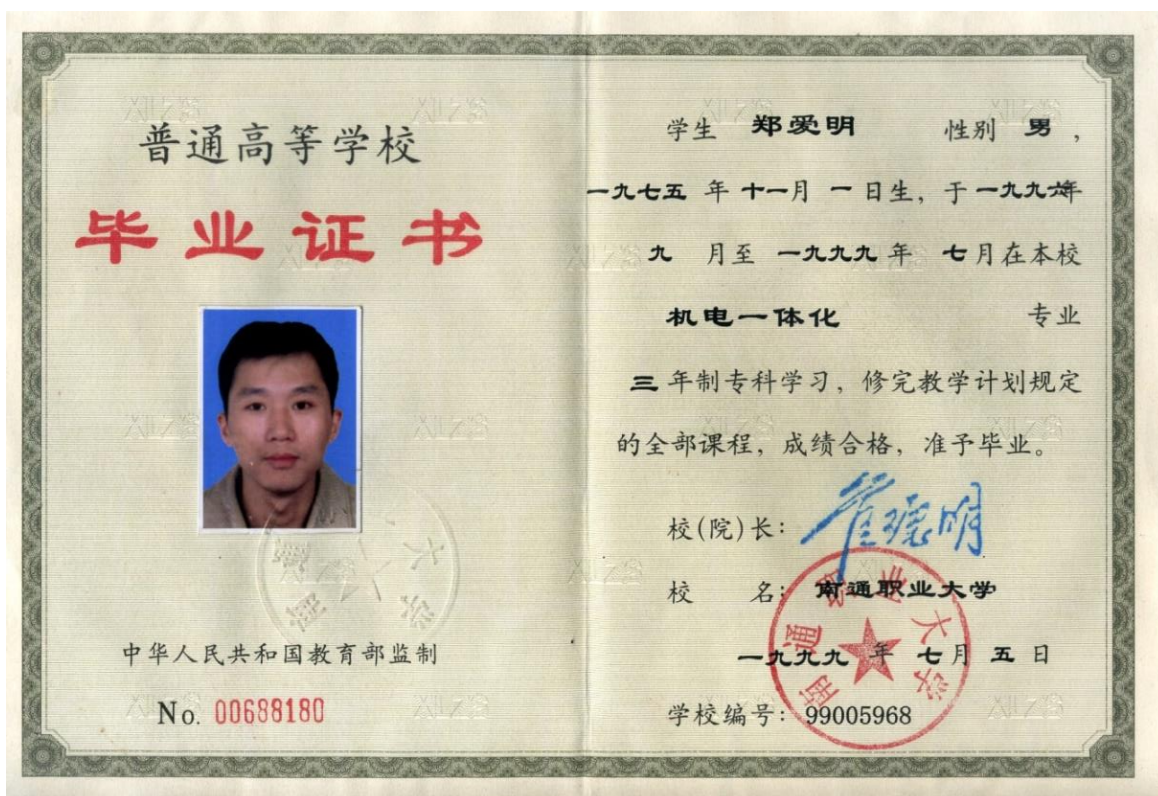 普通高等学校
毕业证书
中华人民共和国教育部监制
No. 00688180
学生 郑爱明 性别 男，
一九七五 年 十一月 一 日生，于 一九九六年
九 月至 一九九九 年 七月在本校
机电一体化 专业
三 年制专科学习，修完教学计划规定
的全部课程，成绩合格，准予毕业。
校(院)长：崔德明
校 名：南通职业大学
一九九九 年 七月 五 日
学校编号：99005968
南通职业大学